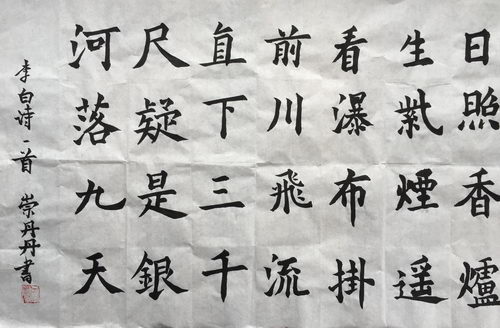 日照香爐
生紫煙遥
看瀑布掛
前川飛流
直下三千
尺疑是銀
河落九天
李白诗一首 崇丹丹書